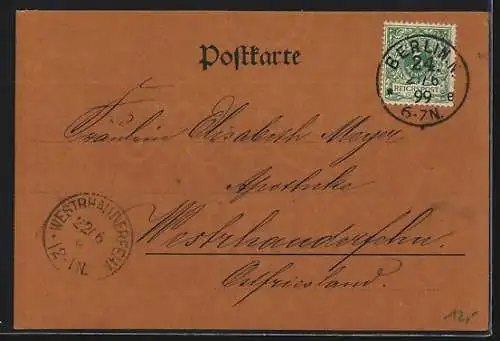 Postkarte
REICHSPOST
BERLIN N.
24
99
6-7N.
Fräulein Elisabeth Meyer
Apotheke
Westrhauderfehn.
Ostfriesland.
WESTRHAUDERFEHN
22/6
12-1N.
12,-